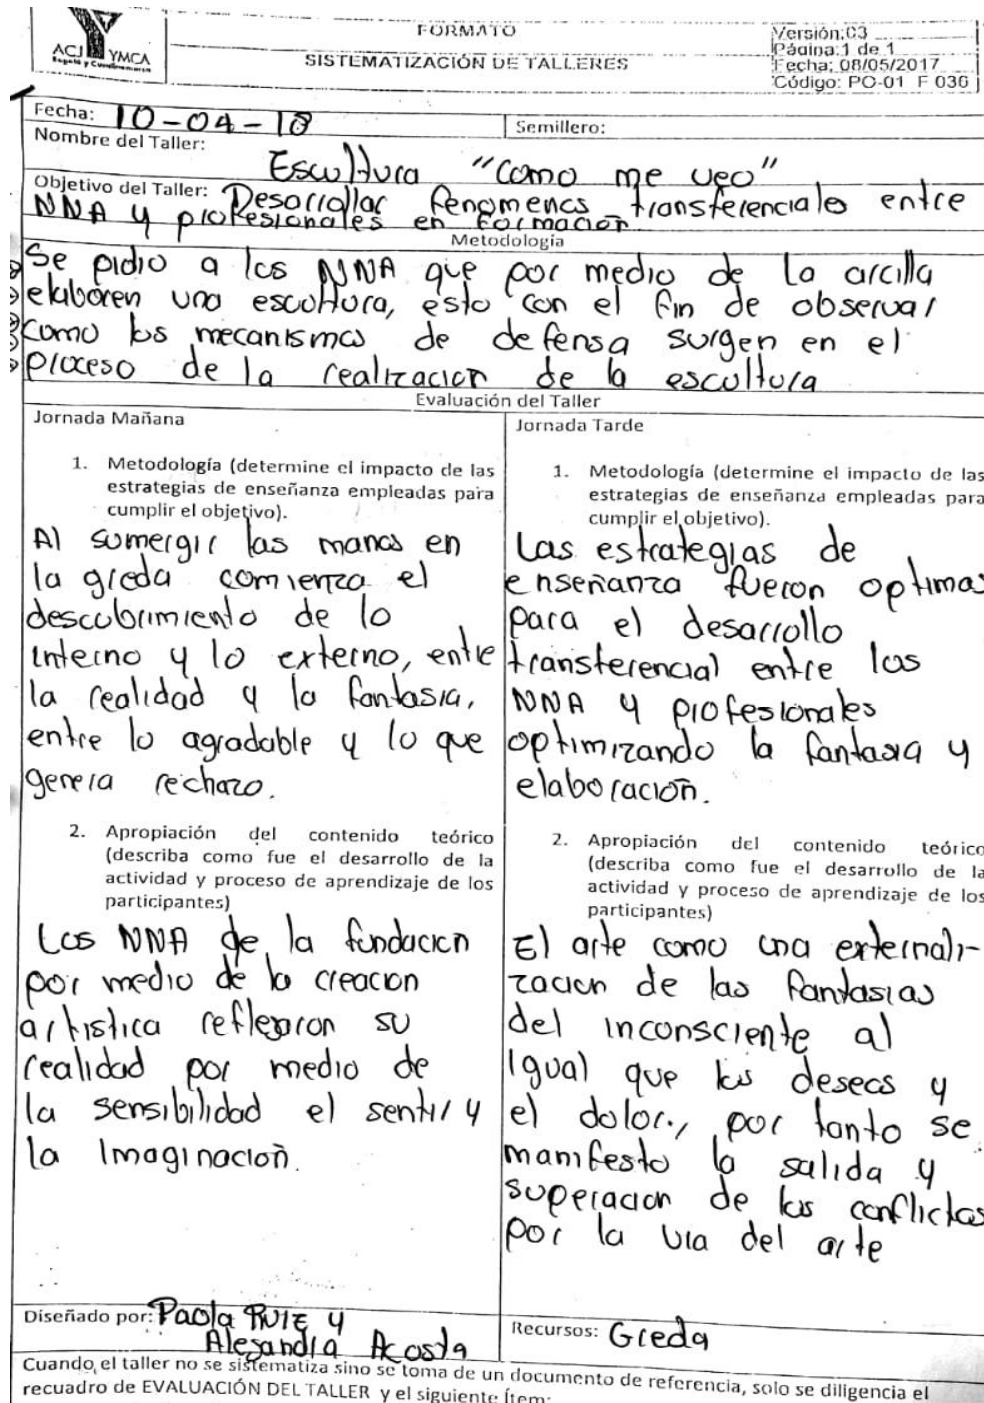 ACJ YMCA
Bogotá y Cundinamarca
FORMATO
SISTEMATIZACIÓN DE TALLERES
Versión:03
Página:1 de 1
Fecha: 08/05/2017
Código: PO-01 F 036
Fecha: 10-04-18
Semillero:
Nombre del Taller:
Escultura "como me veo"
Objetivo del Taller: Desarrollar fenomenos transferenciales entre
NNA y profesionales en formación
Metodología
Se pidio a los NNA que por medio de la arcilla
elaboren una escultura, esto con el fin de observar
como los mecanismos de defensa surgen en el
proceso de la realizacion de la escultura
Evaluación del Taller
Jornada Mañana
1. Metodología (determine el impacto de las
estrategias de enseñanza empleadas para
cumplir el objetivo).
Al sumergir las manos en
la greda comienza el
descubrimiento de lo
interno y lo externo, entre
la realidad y la fantasia,
entre lo agradable y lo que
genera rechazo.
2. Apropiación del contenido teórico
(describa como fue el desarrollo de la
actividad y proceso de aprendizaje de los
participantes)
Los NNA de la fundacion
por medio de la creacion
artistica reflejaron su
realidad por medio de
la sensibilidad el sentir y
la Imaginación.
Jornada Tarde
1. Metodología (determine el impacto de las
estrategias de enseñanza empleadas para
cumplir el objetivo).
Las estrategias de
enseñanza fueron optimas
para el desarrollo
transferencial entre los
NNA y profesionales
optimizando la fantasia y
elaboración.
2. Apropiación del contenido teórico
(describa como fue el desarrollo de la
actividad y proceso de aprendizaje de los
participantes)
El arte como una externali-
zacion de las fantasias
del inconsciente al
Igual que los deseos y
el dolor., por tanto se
manifesto la salida y
superacion de los conflictos
por la via del arte
Diseñado por: Paola Ruiz y
Alejandra Acosta
Recursos: Greda
Cuando el taller no se sistematiza sino se toma de un documento de referencia, solo se diligencia el
recuadro de EVALUACIÓN DEL TALLER y el siguiente ítem: